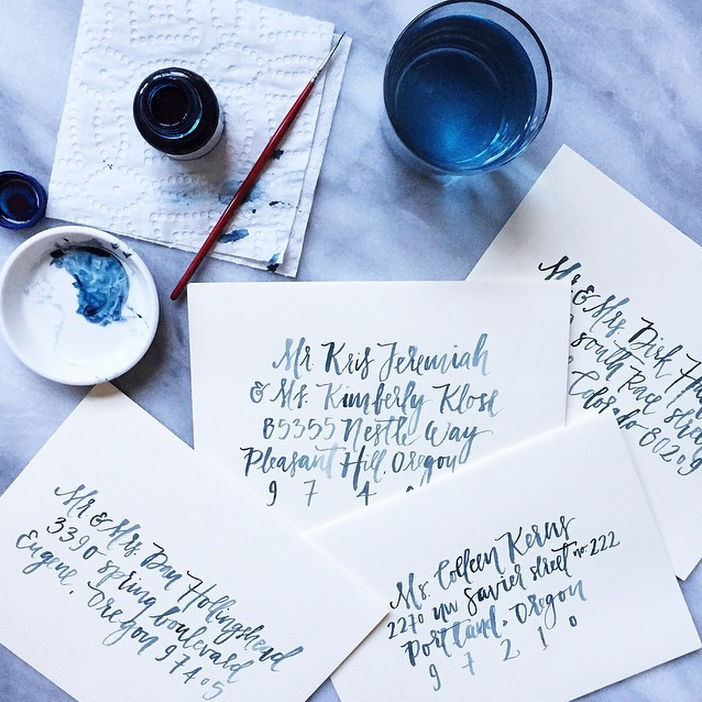 Mr Kris Jeremiah
& Ms. Kimberly Klose
85355 Nestle Way
Pleasant Hill, Oregon
9 7 4
Mr & Mrs. Dirk
South Race Street
Colorado 80209
Mr & Mrs. Dan Hollingshead
3390 Spring boulevard
Eugene, Oregon 97405
Ms. Colleen Kerns
2270 NW Savier street no. 222
Portland, Oregon
9 7 2 1 0